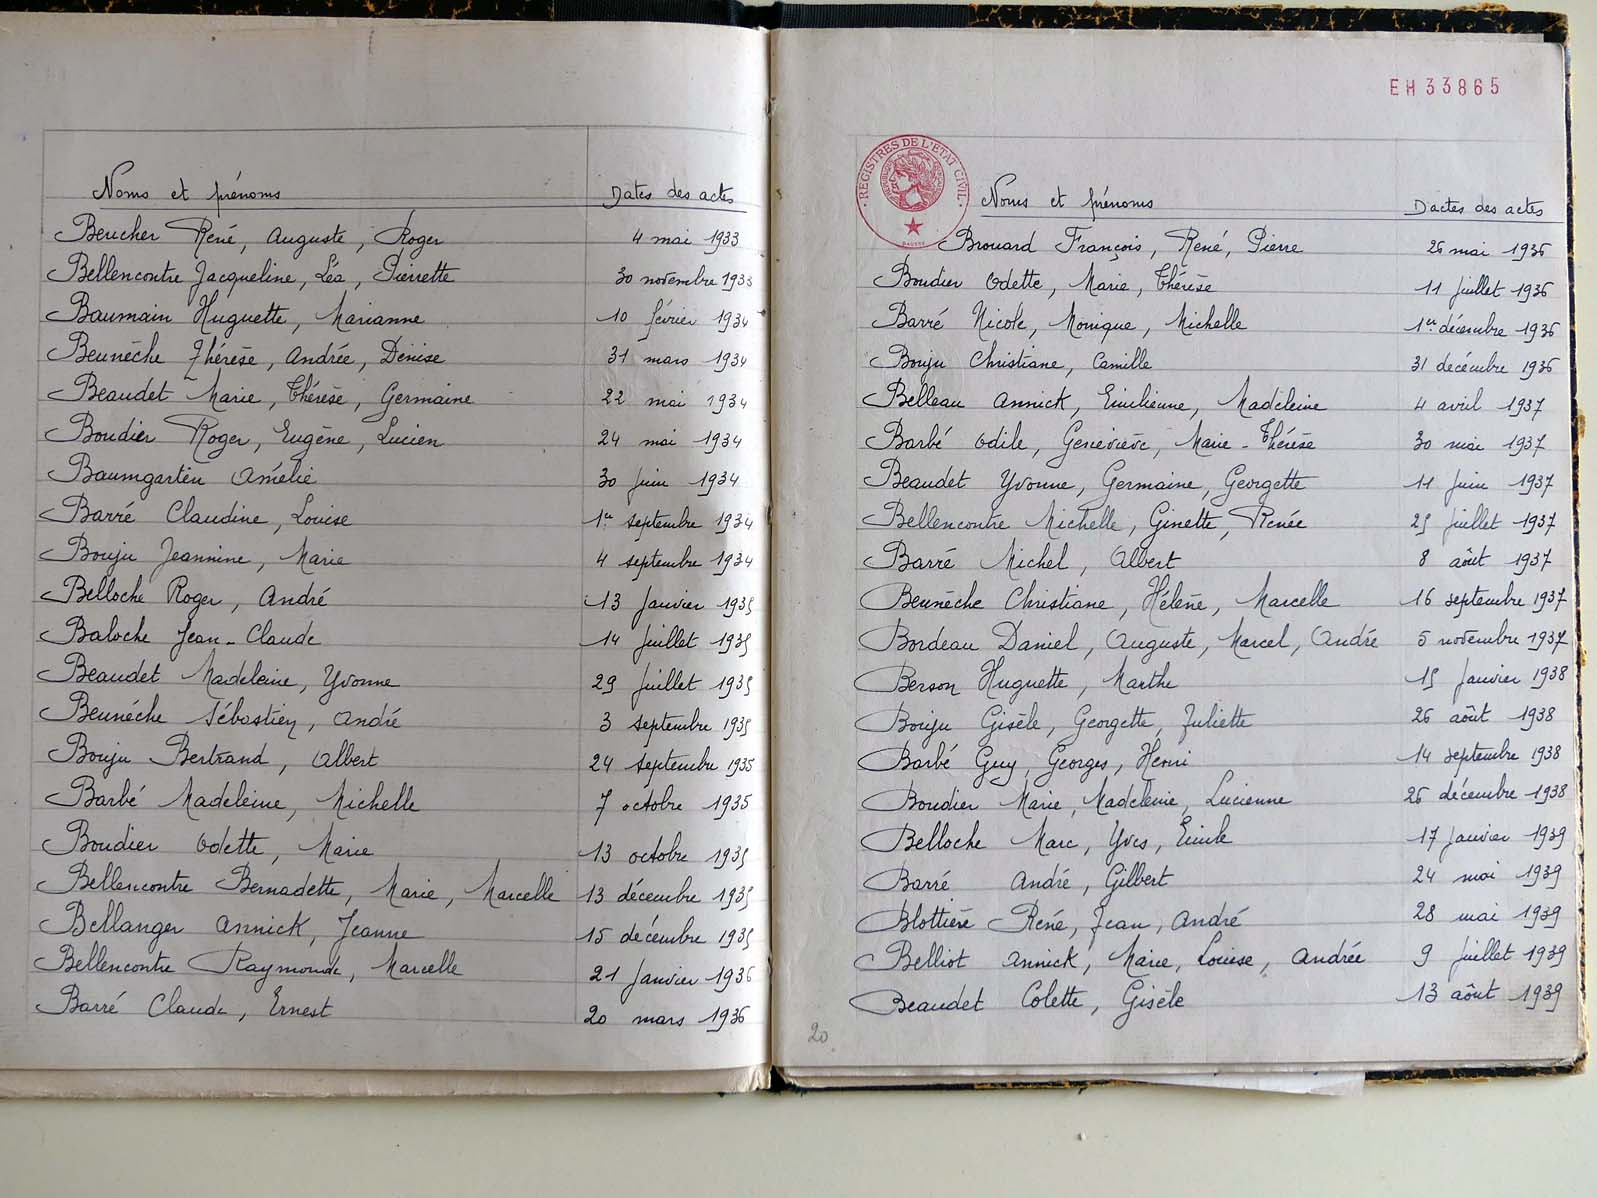 Noms et prénoms Dates des actes
Beucher René, Auguste, Roger 4 mai 1933
Bellencontre Jacqueline, Léa, Pierrette 30 novembre 1933
Baumain Huguette, Marianne 10 février 1934
Beunèche Thérèse, Andrée, Denise 31 mars 1934
Beaudet Marie, Thérèse, Germaine 22 mai 1934
Boudier Roger, Eugène, Lucien 24 mai 1934
Baumgarten Amélie 30 juin 1934
Barré Claudine, Louise 1er septembre 1934
Bouju Jeannine, Marie 4 septembre 1934
Belloche Roger, André 13 janvier 1935
Baloche Jean-Claude 14 juillet 1935
Beaudet Madeleine, Yvonne 29 juillet 1935
Beunèche Sébastien, André 3 septembre 1935
Bouju Bertrand, Albert 24 septembre 1935
Barbé Madeleine, Michelle 7 octobre 1935
Boudier Odette, Marie 13 octobre 1935
Bellencontre Bernadette, Marie, Marcelle 13 décembre 1935
Bellanger Annick, Jeanne 15 décembre 1935
Bellencontre Raymonde, Marcelle 21 janvier 1936
Barré Claude, Ernest 20 mars 1936
EH33865
REGISTRES DE L'ÉTAT CIVIL
Noms et prénoms Dactes des actes
Brouard François, René, Pierre 26 mai 1936
Boudier Odette, Marie, Thérèse 11 juillet 1936
Barré Nicole, Monique, Michelle 1er décembre 1936
Bouju Christiane, Camille 31 décembre 1936
Belleau Annick, Emilienne, Madeleine 4 avril 1937
Barbé Odile, Geneviève, Marie-Thérèse 30 mai 1937
Beaudet Yvonne, Germaine, Georgette 11 juin 1937
Bellencontre Michelle, Ginette, Renée 25 juillet 1937
Barré Michel, Albert 8 août 1937
Beunèche Christiane, Hélène, Marcelle 16 septembre 1937
Bordeau Daniel, Auguste, Marcel, André 5 novembre 1937
Berson Huguette, Marthe 15 janvier 1938
Bouju Gisèle, Georgette, Juliette 26 août 1938
Barbé Guy, Georges, Henri 14 septembre 1938
Boudier Marie, Madeleine, Lucienne 26 décembre 1938
Belloche Marc, Yves, Emile 17 janvier 1939
Barré André, Gilbert 24 mai 1939
Blottière René, Jean, André 28 mai 1939
Belliot Annick, Marie, Louise, Andrée 9 juillet 1939
Beaudet Colette, Gisèle 13 août 1939
20